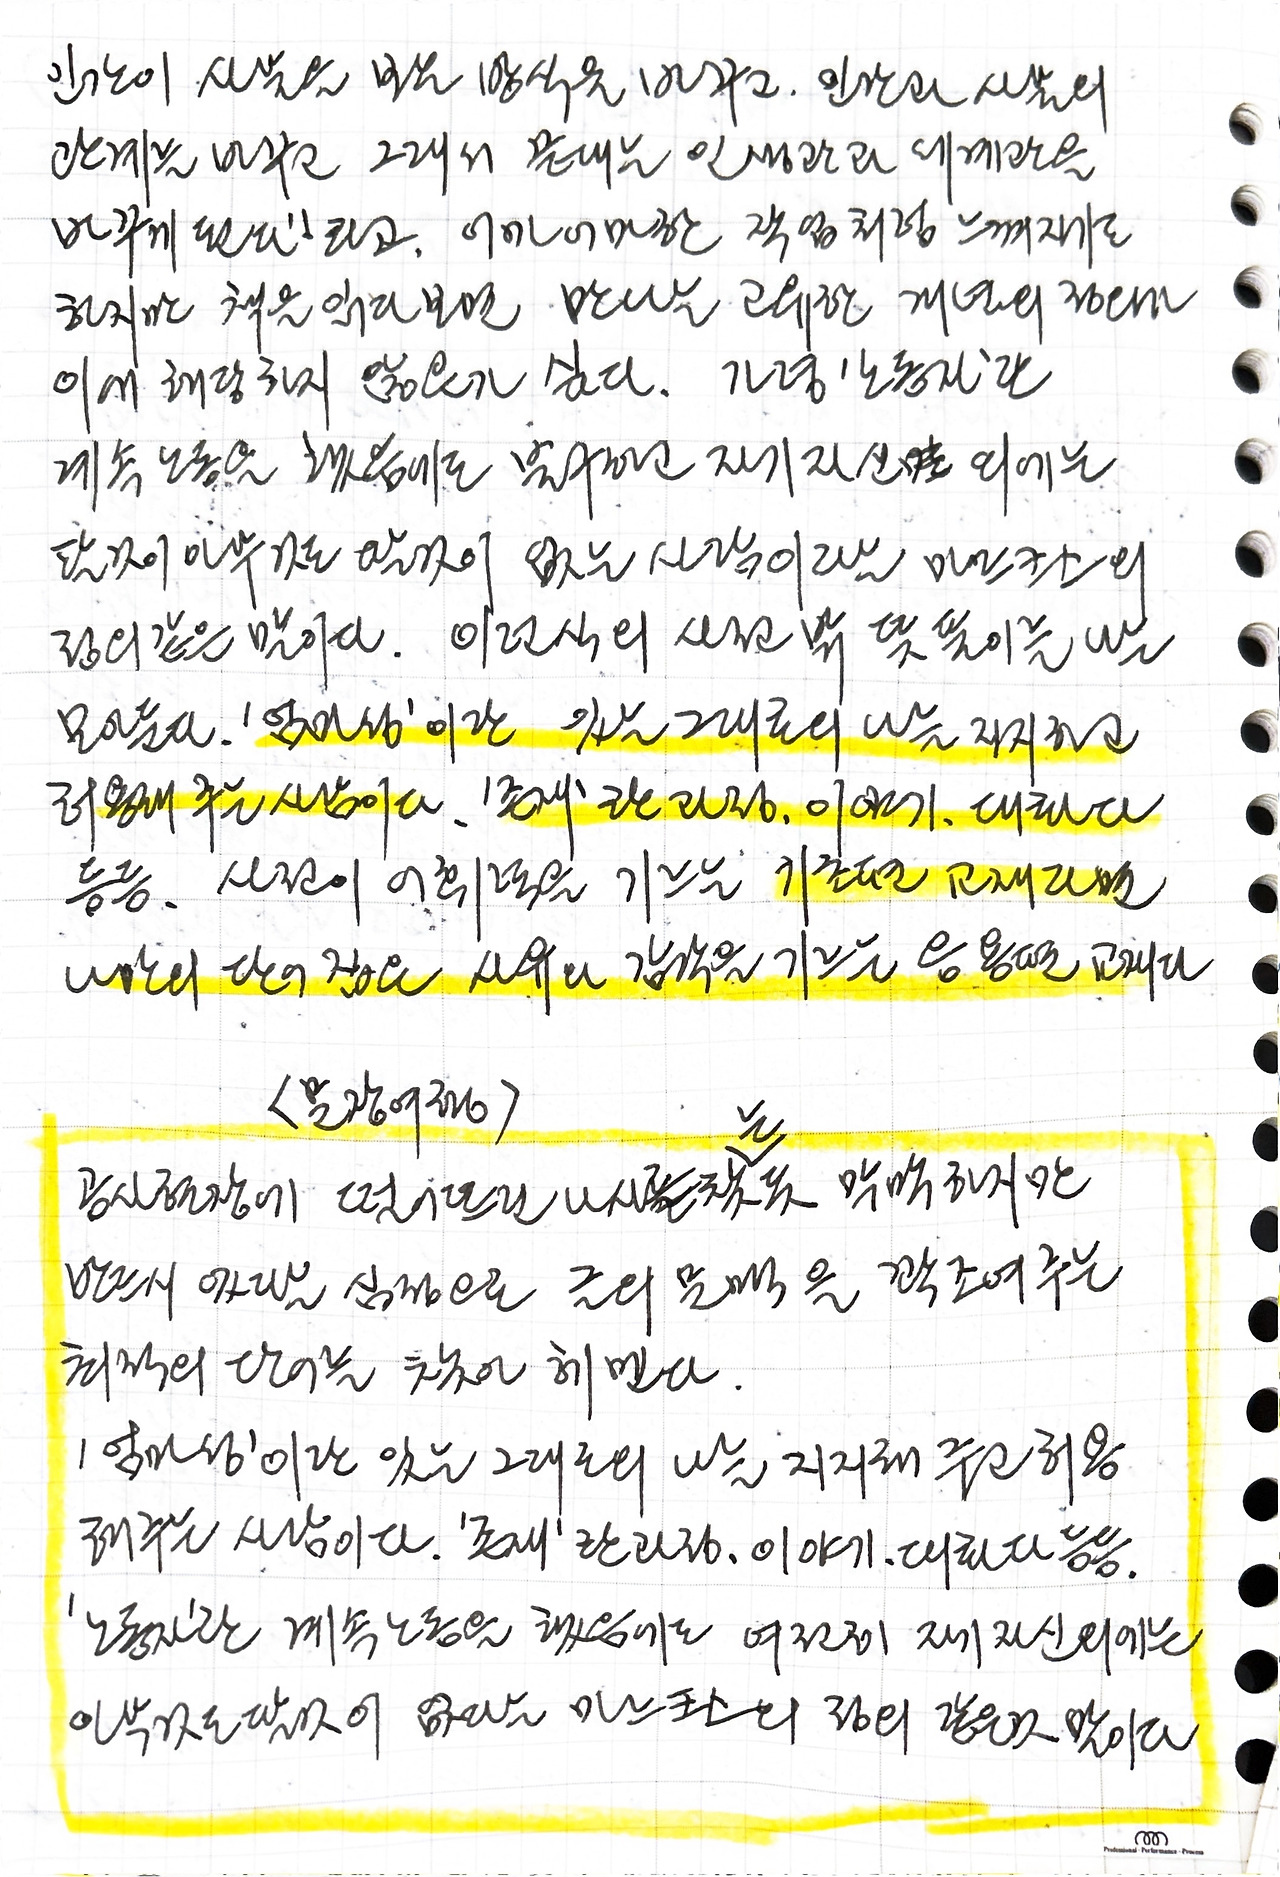 인간이 사물을 보는 방식을 바꾸고. 인간과 사물의
관계를 바꾸고 그래서 끝내는 인생관과 세계관을
바꾸게 된다'라고. 어마어마한 작업처럼 느껴지기도
하지만 책을 읽다보면 만나는 교유한 개념의 정의가
이에 해당하지 않을까 싶다. 가령 '노동자'란
계속 노동을 했음에도 불구하고 자기 자신 외에는
팔것이 아무것도 팔것이 없는 사람이라는 마르크스의
정의같은 말이다. 이런식의 사전 밖 뜻풀이를 나는
모아둔다. '엄마상'이란 있는 그대로의 나를 지지하고
허용해 주는 사람이다. '존재'란 과정. 이야기. 대화다
등등. 사전이 어휘력을 기르는 기초편 교재라면
나만의 단어 정의는 사유와 감각을 기르는 응용편 교재다
<문장여정>
공사현장에 떨어뜨린 나사를 찾는 듯 막막하지만
반드시 있다는 심정으로 글의 문맥을 꽉 조여 주는
최적의 단어를 찾아 헤맨다.
'엄마상'이란 있는 그대로의 나를 지지해 주고 허용
해주는 사람이다. '존재'란 과정. 이야기. 대화다 등등.
'노동자'란 계속 노동을 했음에도 여전히 자기 자신 외에는
아무것도 팔것이 없다는 마르크스의 정의 같은것 말이다
Professional · Performance · Process